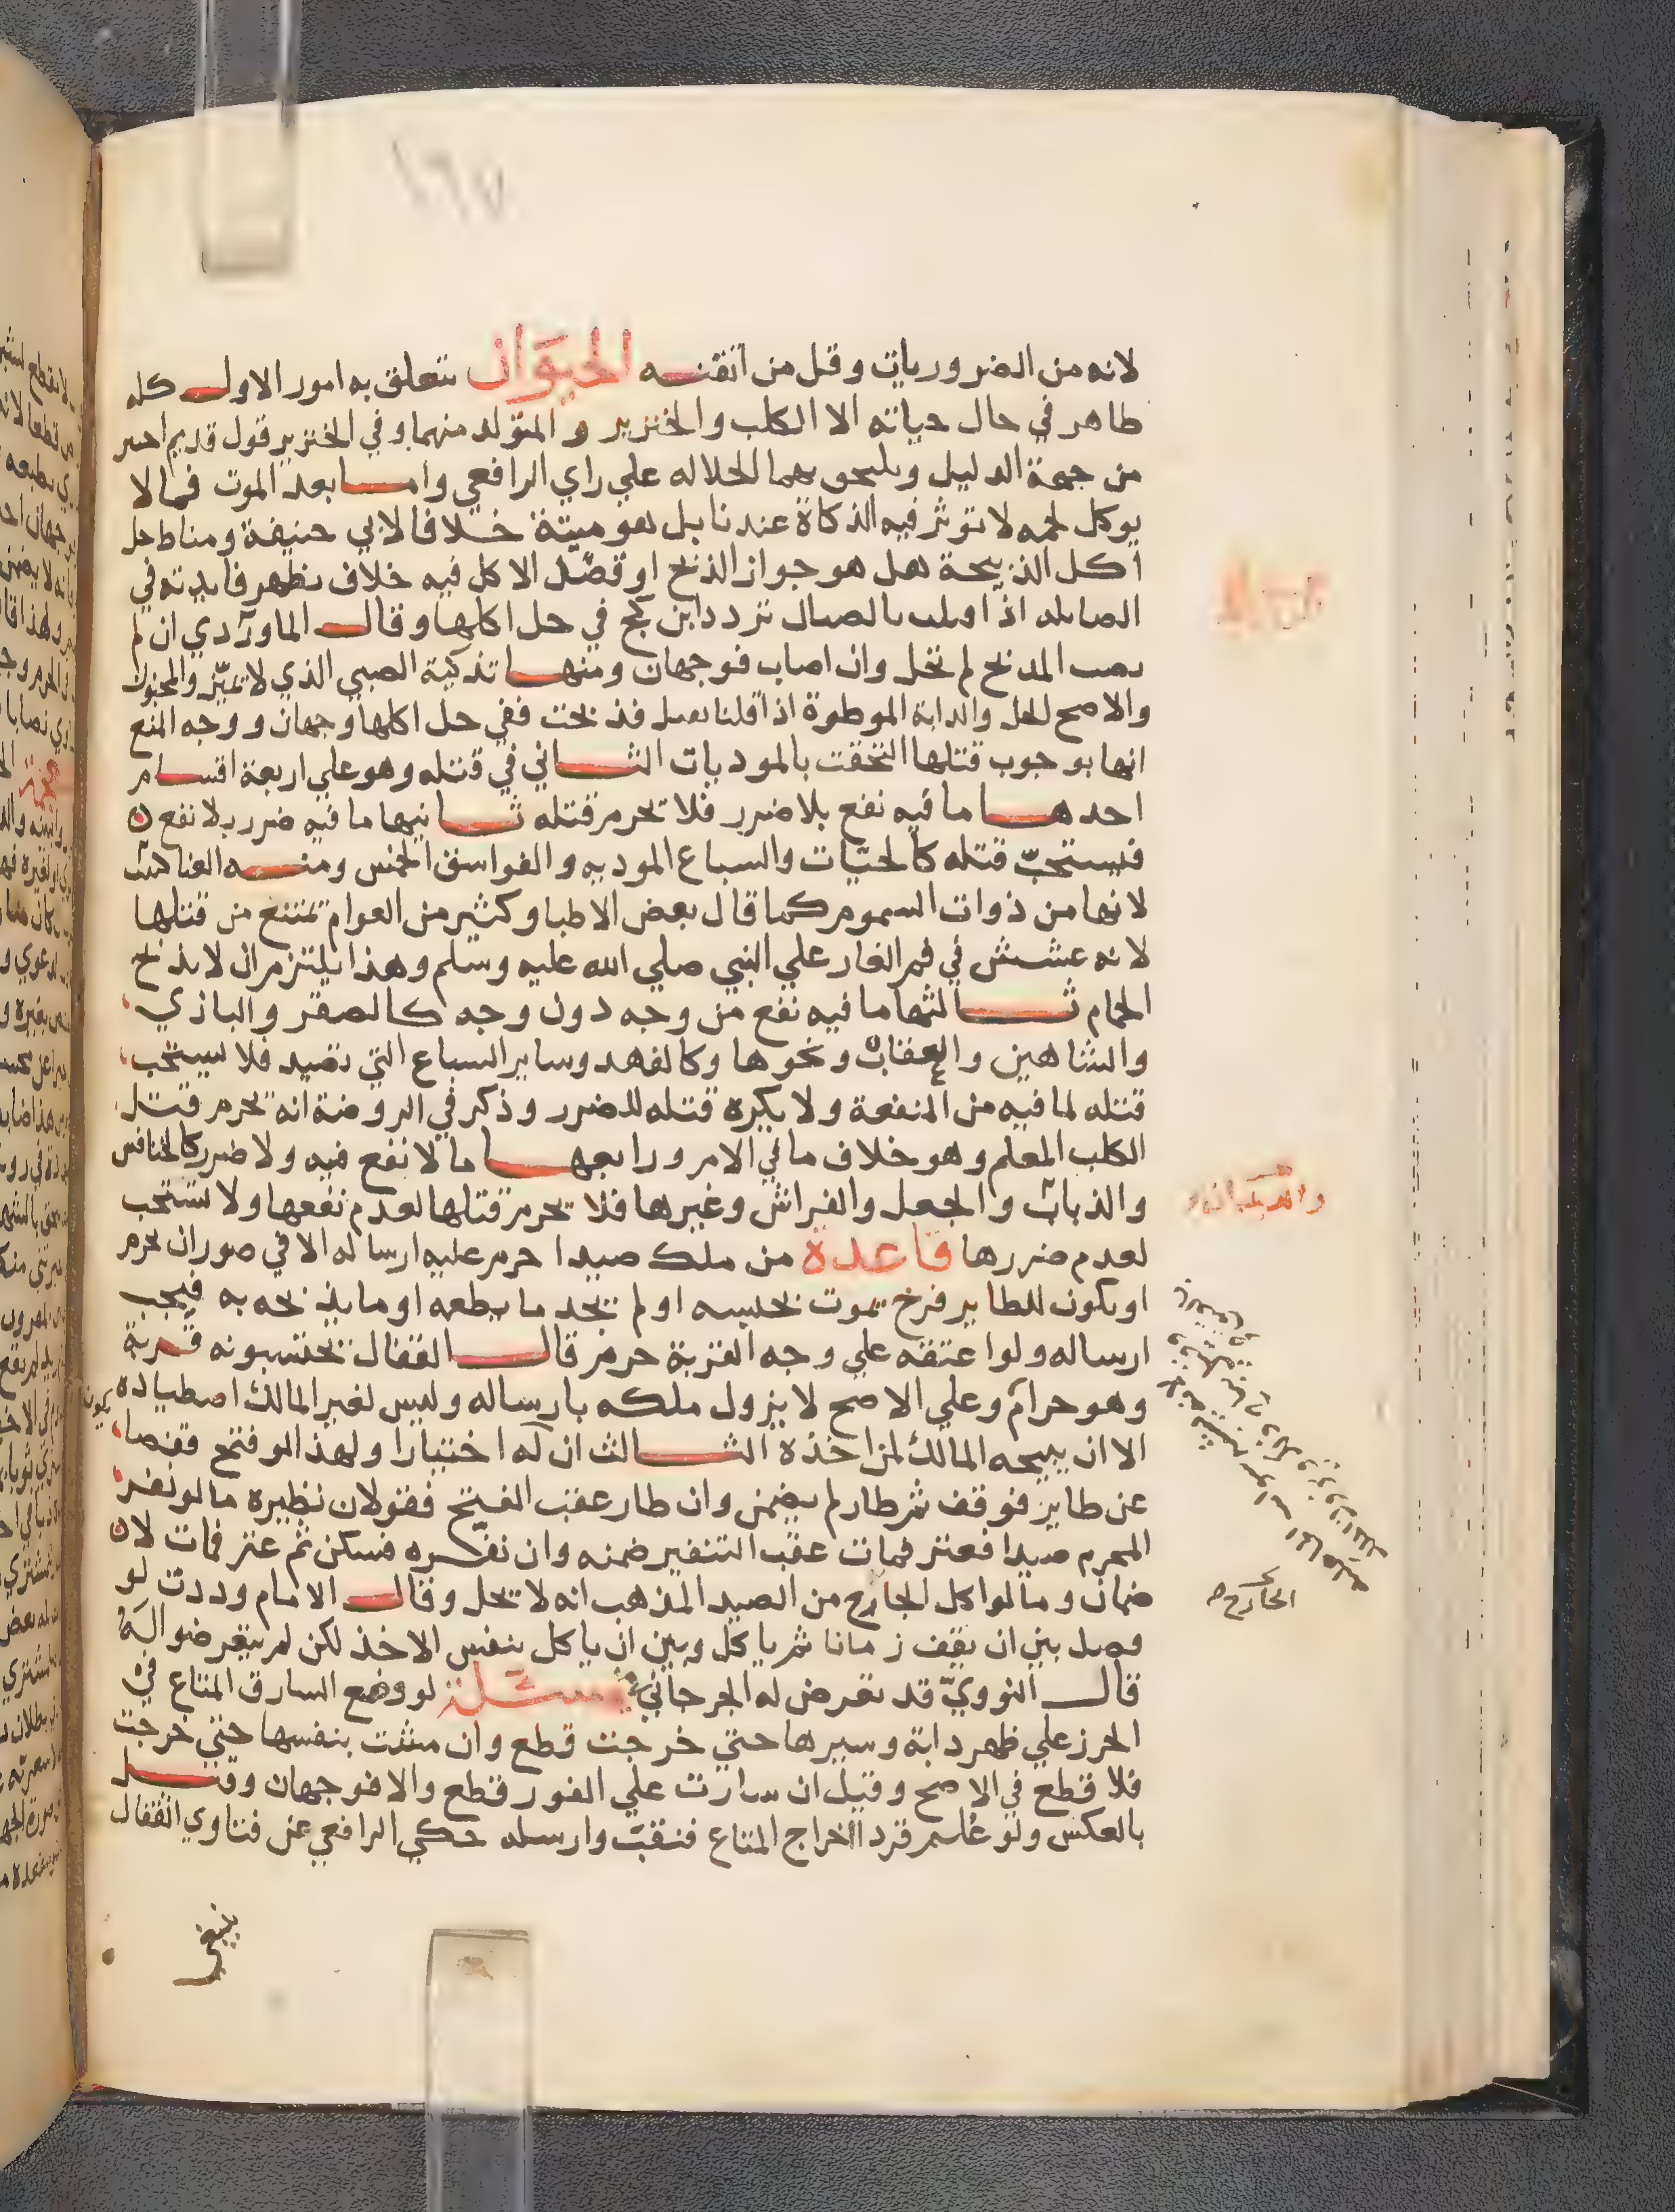 ١٦٧
لانه من الضروريات وقل من اتقنه الحيوان تتعلق به امور الاول كله
طاهر في حال حياته الا الكلب والخنزير والمتولد منهما وفي الخنزير قول قديم احسر
من جهة الدليل ويلحق بهما الجلاله علي راي الرافعي واما بعد الموت فمالا
يوكل لحمه لا توثر فيه الذكاة عندنا بل هو ميتة خلافا لابي حنيفة ومناط حل
اكل الذبيحة هل هو جواز الذبح او قصد الاكل فيه خلاف يظهر فايدته في
الصايله اذا تردد ابن كج في حل اكلها وقال الماوردي ان لم
يصب المذبح لم تحل وان اصاب فوجهان ومنها تذكية الصبي الذي لا تميز والمجنون
والاصح الحل والدابة الموطوة اذا قلنا فذبحت ففي حل اكلها وجهان ووجه المنع
انها بوجوب قتلها التحقت بالموديات الثاني في قتله وهو علي اربعة اقسام
احدها ما فيه نفع بلا ضرر فلا تحرم قتله ثانيها ما فيه ضرر بلا نفع
فيستحب قتله كالحيات والسباع الموديه والفواسق الخمس ومنه العناكب
لانها من ذوات السموم كما قال بعض الاطبا وكثير من العوام تمتنع من قتلها
لانه عشش في فم الغار علي النبي صلي الله عليه وسلم وهذا يلتزم ان لا يذبح
الحمام ثالثها ما فيه نفع من وجه دون وجه كالصقر والبازي
والشاهين والعقاب ونحوها وكالفهد وساير السباع التي تصيد فلا يستحب
قتله لما فيه من المنفعة ولا يكره قتله للضرر وذكر في الروضة انه تحرم قتل
الكلب المعلم وهو خلاف ما في الامر ورابعها ما لا نفع فيه ولا ضرر كالخنافس
والذباب والجعل والفراش وغيرها فلا تحرم قتلها لعدم نفعها ولا تستحب
لعدم ضررها قاعدة من ملك صيدا حرم عليه ارساله الا في صور ان يحرم
او يكون للطاير فرخ يموت بحبسه او لم تجد ما يطعمه او ما يذبحه به فيجب
ارساله ولو اعتقه علي وجه القربة حرم قال القفال تحتسبونه قربة
وهو حرام وعلي الاصح لا يزول ملكه بارساله وليس لغير المالك اصطياده
الا ان يبيحه المالك لمن اخذه الثالث ان له اختيارا ولهذا لو فتح قفصا
عن طاير فوقف ثم طار لم يضمن وان طار عقب الفتح فقولان نظيره ما لو نفر
المحرم صيدا فعثر فمات عقب التنفير ضمنه وان نفره فسكن ثم عثر فمات لا
ضمان وما لو اكل الجارح من الصيد المذهب انه لا تحل وقال الامام وددت لو
فصل بين ان يقف زمانا ثم ياكل وبين ان ياكل بنفس الاخذ لكن لم يتعرضوا له
قال النووي قد تعرض له الجرجاني مسئلة لو وضع السارق المتاع في
الحرز علي ظهر دابة وسيرها حتي خرجت قطع وان مشت بنفسها حتي خرجت
فلا قطع في الاصح وقيل ان سارت علي الفور قطع والا فوجهان وقيل
بالعكس ولو علم قردا اخراج المتاع فنقب وارسله حكي الرافعي عن فتاوي القفال
الجارح
ينبغي